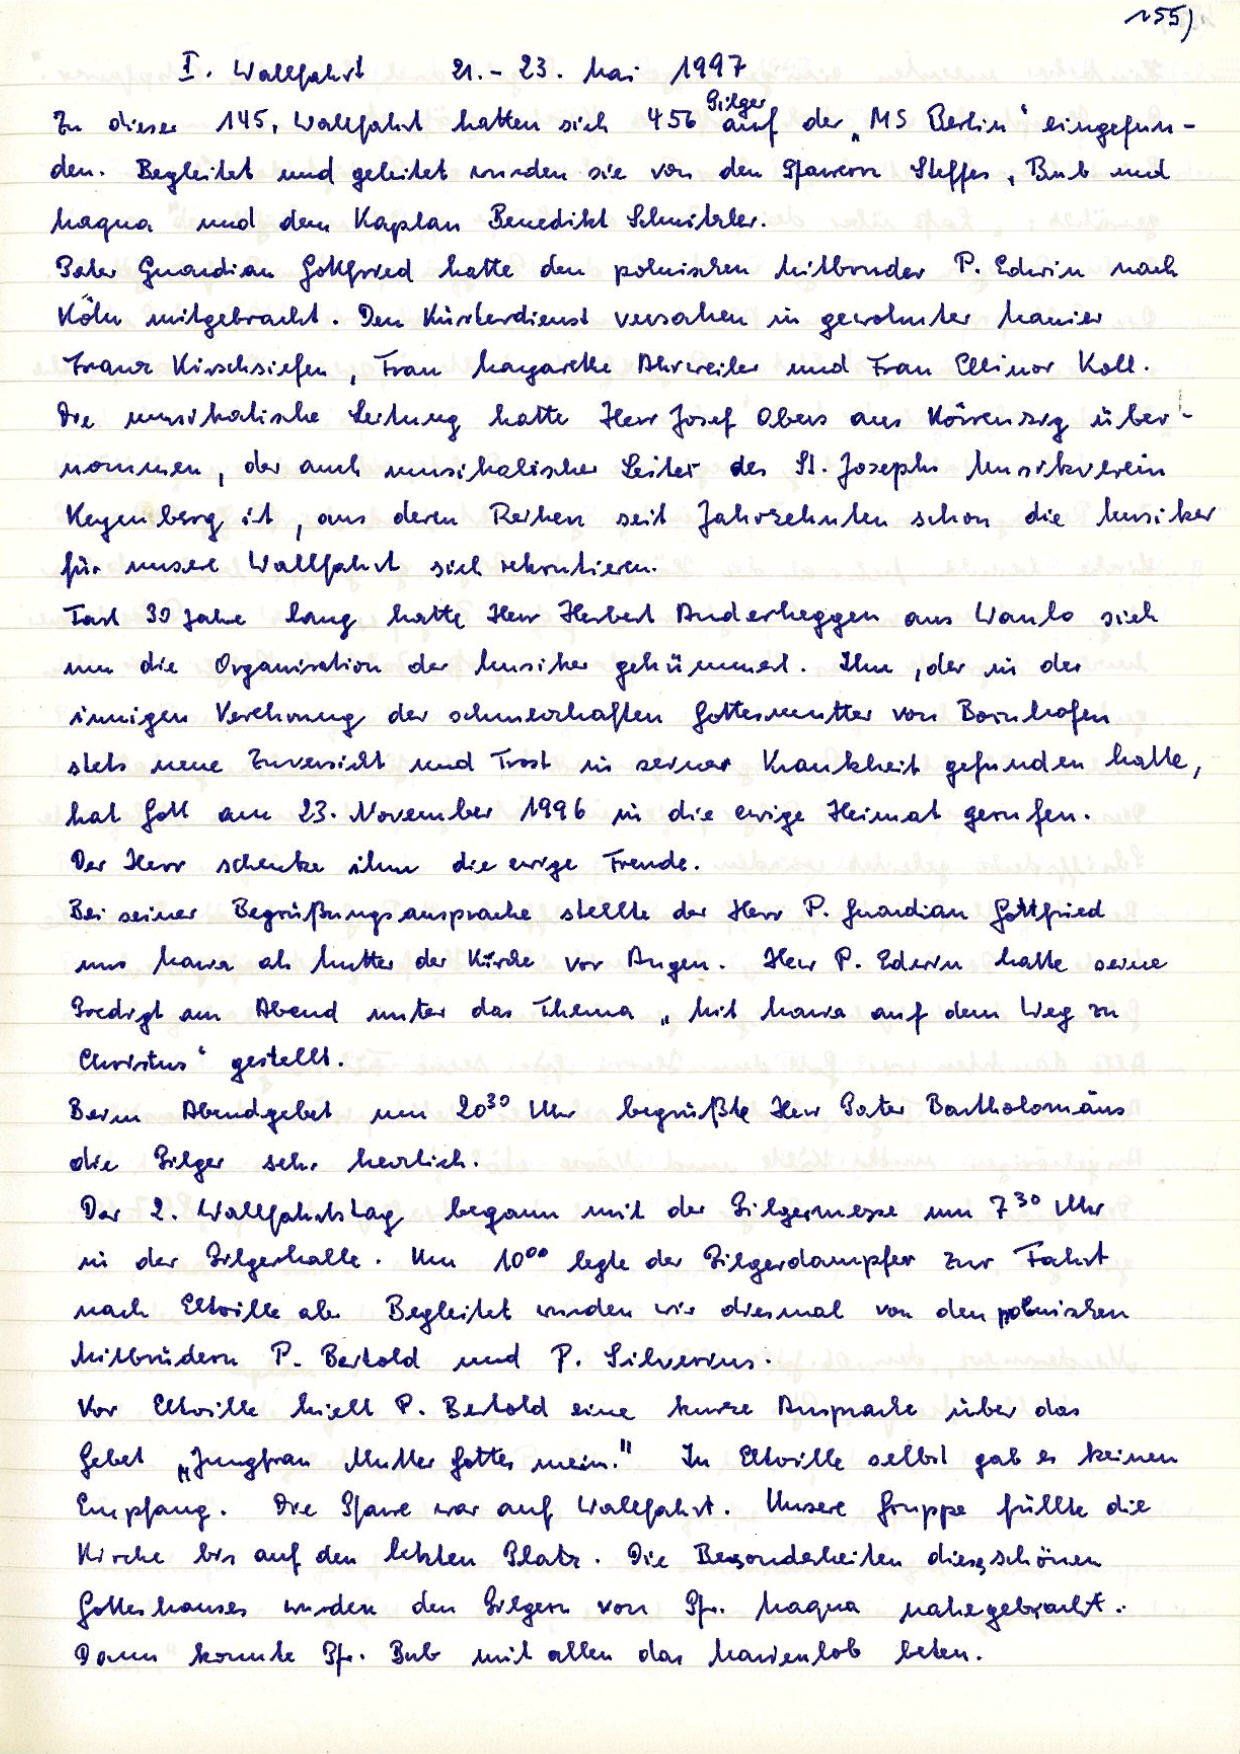 155)
I. Wallfahrt 21.-23. Mai 1997
Zu dieser 145. Wallfahrt hatten sich 456 Pilger auf der „MS Berlin“ eingefun-
den. Begleitet und geleitet wurden sie von den Pfarrern Steffes, Bub und
Maqua und dem Kaplan Benedikt Schnitzler.
Pater Guardian Gottfried hatte den polnischen Mitbruder P. Edwin nach
Köln mitgebracht. Den Küsterdienst versahen in gewohnter Manier
Franz Kirschsiefen, Frau Magarethe Ahrweiler und Frau Ellinor Koll.
Die musikalische Leitung hatte Herr Josef Obers aus Körrenzig über-
nommen, der auch musikalischer Leiter des St. Josephs Musikverein
Keyenberg ist, aus deren Reihen seit Jahrzehnten schon die Musiker
für unsere Wallfahrt sich rekrutieren.
Fast 30 Jahre lang hatte Herr Herbert Anderheggen aus Wanlo sich
um die Organisation der Musiker gekümmert. Ihm, der in der
innigen Verehrung der schmerzhaften Gottesmutter von Bornhofen
stets neue Zuversicht und Trost in seiner Krankheit gefunden hatte,
hat Gott am 23. November 1996 in die ewige Heimat gerufen.
Der Herr schenke ihm die ewige Freude.
Bei seiner Begrüßungsansprache stellte der Herr P. Guardian Gottfried
uns Maria als Mutter der Kirche vor Augen. Herr P. Edwin hatte seine
Predigt am Abend unter das Thema „Mit Maria auf dem Weg zu
Christus“ gestellt.
Beim Abendgebet um 20³⁰ Uhr begrüßte Herr Pater Bartholomäus
die Pilger sehr herzlich.
Der 2. Wallfahrtstag begann mit der Pilgermesse um 7³⁰ Uhr
in der Pilgerhalle. Um 10⁰⁰ legte der Pilgerdampfer zur Fahrt
nach Eltville ab. Begleitet wurden wir diesmal von den polnischen
Mitbrüdern P. Bertold und P. Silverius.
Vor Eltville hielt P. Bertold eine kurze Ansprache über das
Gebet „Jungfrau Mutter Gottes mein." In Eltville selbst gab es keinen
Empfang. Die Pfarre war auf Wallfahrt. Unsere Gruppe füllte die
Kirche bis auf den letzten Platz. Die Besonderheiten dies. schönen
Gotteshauses wurden den Pilgern von Pfr. Maqua nahegebracht.
Dann konnte Pfr. Bub mit allen das Marienlob beten.